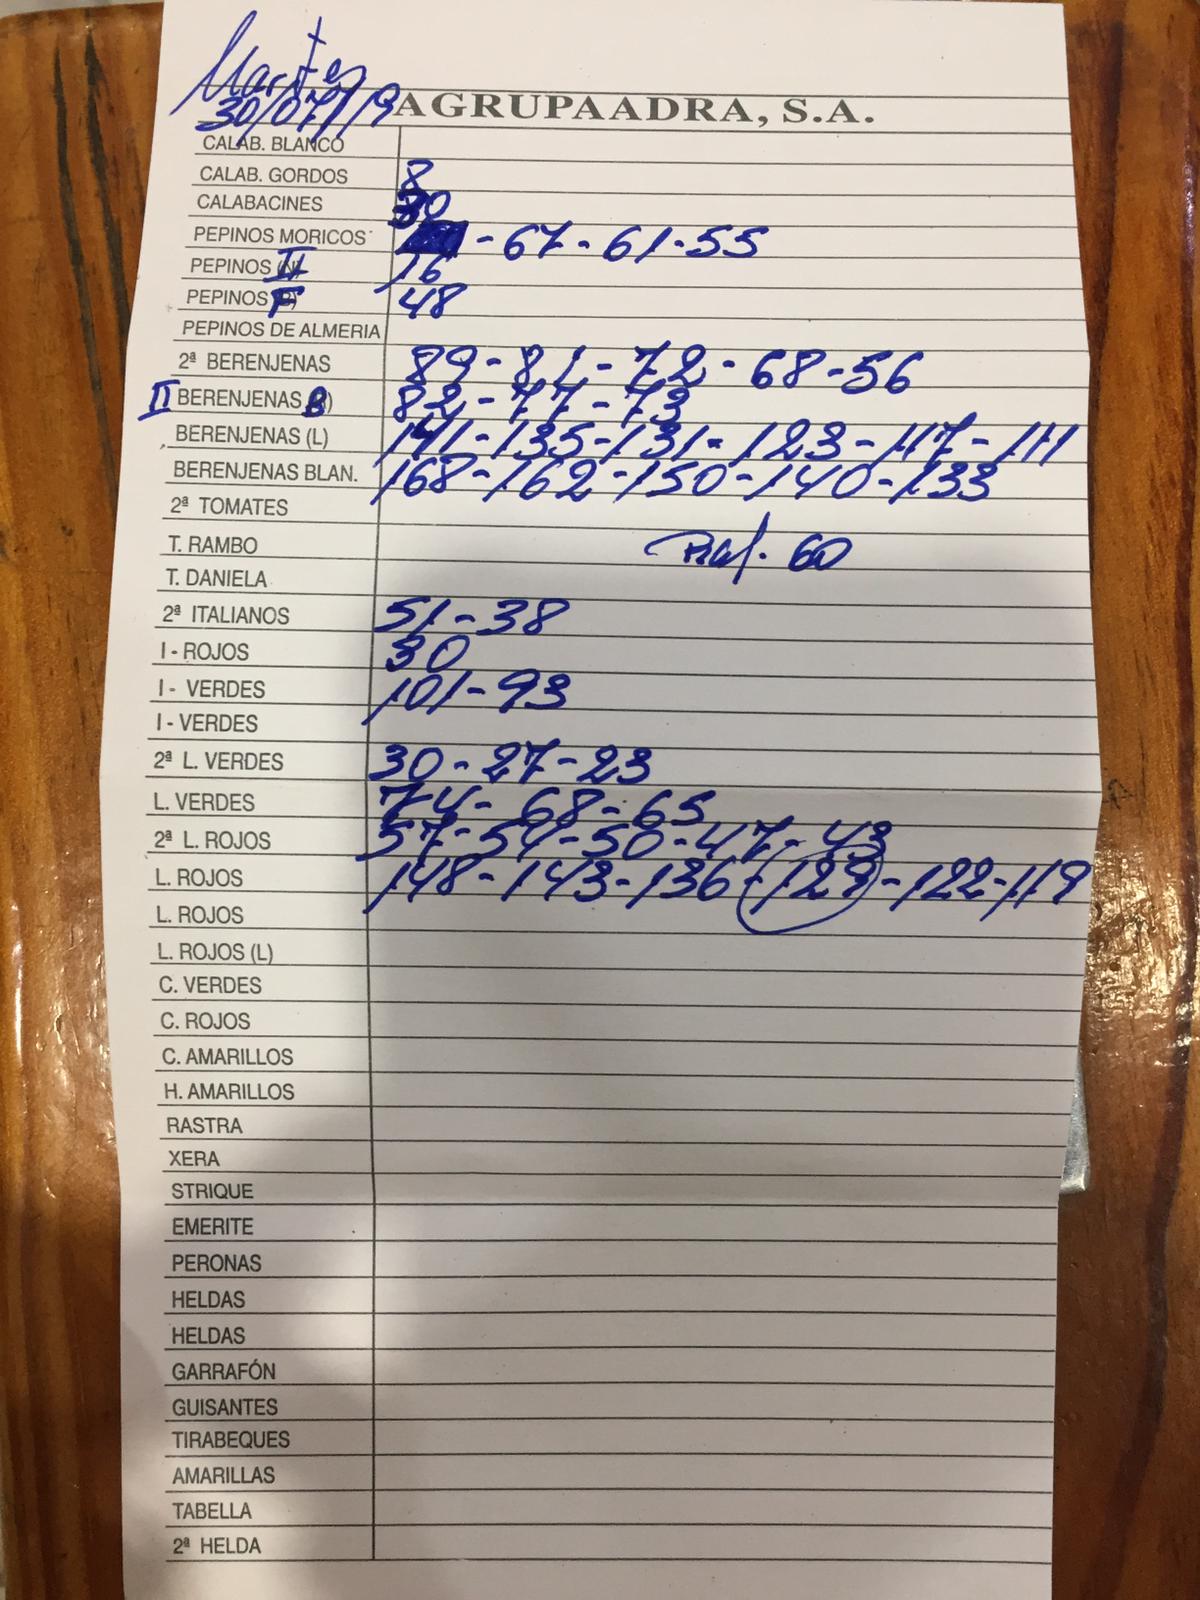 Martes
30/07/19 AGRUPAADRA, S.A.
CALAB. BLANCO
CALAB. GORDOS 8
CALABACINES 30
PEPINOS MORICOS - 67 - 61 - 55
PEPINOS II 16
PEPINOS F 48
PEPINOS DE ALMERIA
2ª BERENJENAS 89 - 81 - 72 - 68 - 56
II BERENJENAS B 82 - 77 - 73
BERENJENAS (L) 141 - 135 - 131 - 123 - 117 - 111
BERENJENAS BLAN. 168 - 162 - 150 - 140 - 133
2ª TOMATES
T. RAMBO 60
T. DANIELA
2ª ITALIANOS 51 - 38
I - ROJOS 30
I - VERDES 101 - 93
I - VERDES
2ª L. VERDES 30 - 27 - 23
L. VERDES 74 - 68 - 65
2ª L. ROJOS 57 - 54 - 50 - 47 - 43
L. ROJOS 148 - 143 - 136 - 129 - 122 - 119
L. ROJOS
L. ROJOS (L)
C. VERDES
C. ROJOS
C. AMARILLOS
H. AMARILLOS
RASTRA
XERA
STRIQUE
EMERITE
PERONAS
HELDAS
HELDAS
GARRAFÓN
GUISANTES
TIRABEQUES
AMARILLAS
TABELLA
2ª HELDA